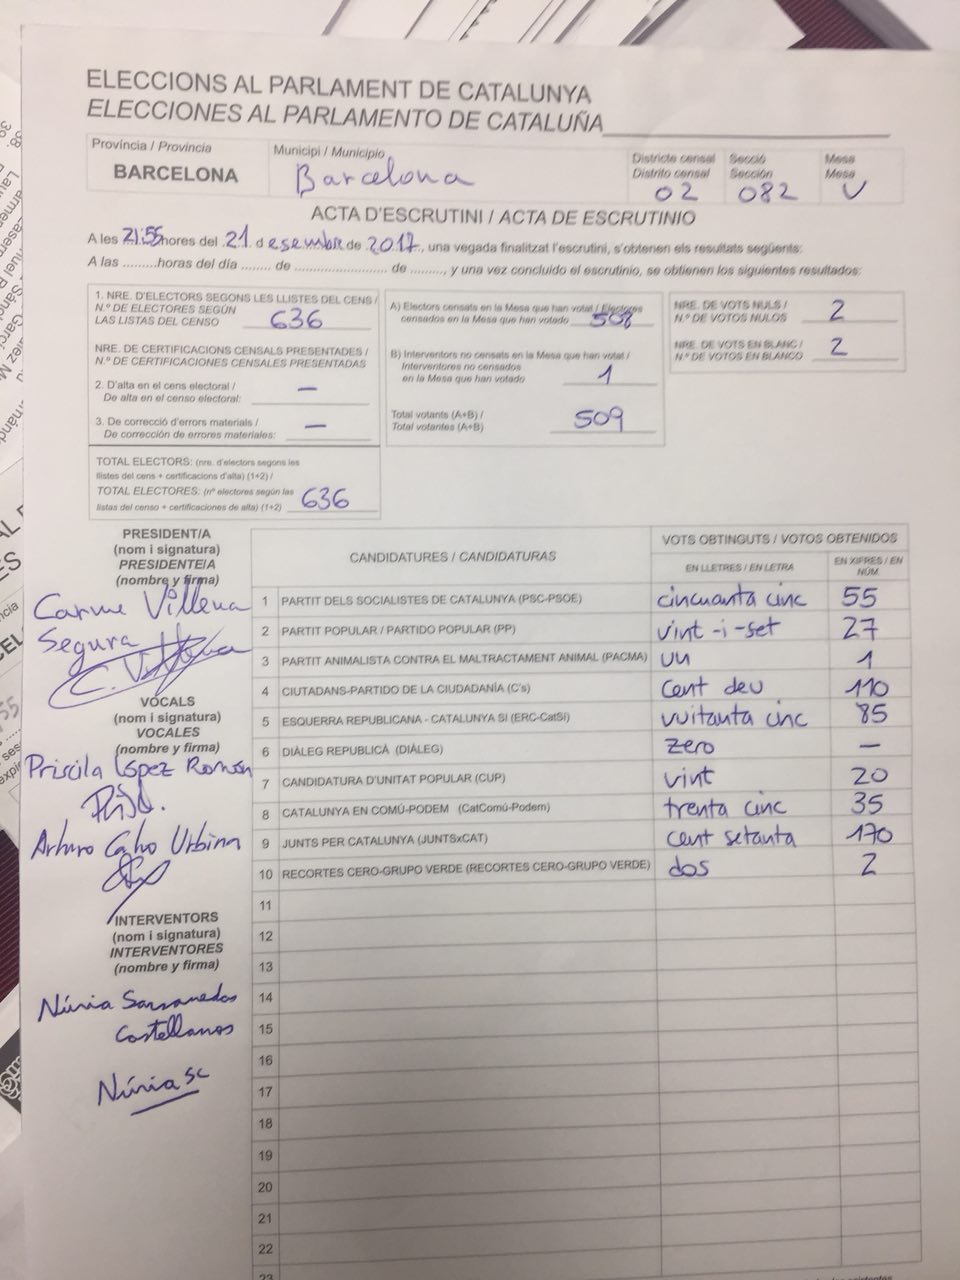 ELECCIONS AL PARLAMENT DE CATALUNYA
ELECCIONES AL PARLAMENTO DE CATALUÑA
Província / Provincia
BARCELONA
Municipi / Municipio
Barcelona
Districte censal
Distrito censal
02
Secció
Sección
082
Mesa
Mesa
U
ACTA D'ESCRUTINI / ACTA DE ESCRUTINIO
A les 21:55 hores del 21 d esembre de 2017, una vegada finalitzat l'escrutini, s'obtenen els resultats següents:
A las .........horas del día ........ de ........................ de ........., y una vez concluido el escrutinio, se obtienen los siguientes resultados:
1. NRE. D'ELECTORS SEGONS LES LLISTES DEL CENS /
N.º DE ELECTORES SEGÚN
LAS LISTAS DEL CENSO 636
NRE. DE CERTIFICACIONS CENSALS PRESENTADES /
N.º DE CERTIFICACIONES CENSALES PRESENTADAS
2. D'alta en el cens electoral /
De alta en el censo electoral: —
3. De correcció d'errors materials /
De corrección de errores materiales: —
TOTAL ELECTORS: (nre. d'electors segons les
llistes del cens + certificacions d'alta) (1+2) /
TOTAL ELECTORES: (nº electores según las
listas del censo + certificaciones de alta) (1+2) 636
A) Electors censats en la Mesa que han votat / Electores
censados en la Mesa que han votado 508
B) Interventors no censats en la Mesa que han votat /
Interventores no censados
en la Mesa que han votado 1
Total votants (A+B) /
Total votantes (A+B) 509
NRE. DE VOTS NULS /
N.º DE VOTOS NULOS 2
NRE. DE VOTS EN BLANC /
N.º DE VOTOS EN BLANCO 2
PRESIDENT/A
(nom i signatura)
PRESIDENTE/A
(nombre y firma)
Carme Villena
Segura
VOCALS
(nom i signatura)
VOCALES
(nombre y firma)
Priscila López Román
Arturo Calvo Urbina
INTERVENTORS
(nom i signatura)
INTERVENTORES
(nombre y firma)
Núria Sarsanedas
Castellanos
Núria SC
CANDIDATURES / CANDIDATURAS
VOTS OBTINGUTS / VOTOS OBTENIDOS
EN LLETRES / EN LETRA
EN XIFRES / EN
NÚM.
1 PARTIT DELS SOCIALISTES DE CATALUNYA (PSC-PSOE) cincuanta cinc 55
2 PARTIT POPULAR / PARTIDO POPULAR (PP) vint-i-set 27
3 PARTIT ANIMALISTA CONTRA EL MALTRACTAMENT ANIMAL (PACMA) un 1
4 CIUTADANS-PARTIDO DE LA CIUDADANÍA (C's) cent deu 110
5 ESQUERRA REPUBLICANA - CATALUNYA SÍ (ERC-CatSí) vuitanta cinc 85
6 DIÀLEG REPUBLICÀ (DIÀLEG) zero —
7 CANDIDATURA D'UNITAT POPULAR (CUP) vint 20
8 CATALUNYA EN COMÚ-PODEM (CatComú-Podem) trenta cinc 35
9 JUNTS PER CATALUNYA (JUNTSxCAT) cent setanta 170
10 RECORTES CERO-GRUPO VERDE (RECORTES CERO-GRUPO VERDE) dos 2
11
12
13
14
15
16
17
18
19
20
21
22
23